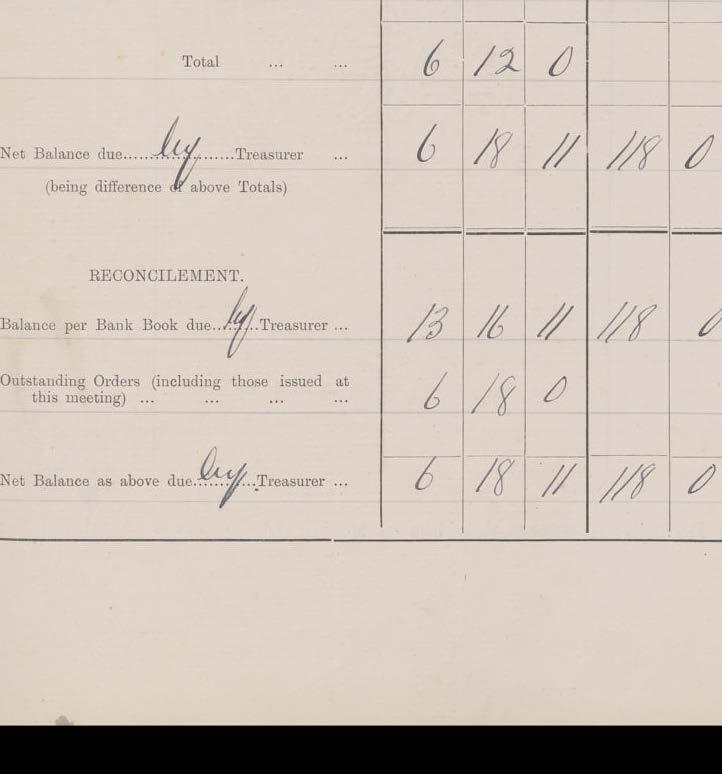 Total ... ... 6 12 0
Net Balance due......by......Treasurer ... 6 18 11 118 0
(being difference of above Totals)
RECONCILEMENT.
Balance per Bank Book due..by..Treasurer ... 13 16 11 118 0
Outstanding Orders (including those issued at
this meeting) ... ... ... ... 6 18 0
Net Balance as above due..by..Treasurer ... 6 18 11 118 0